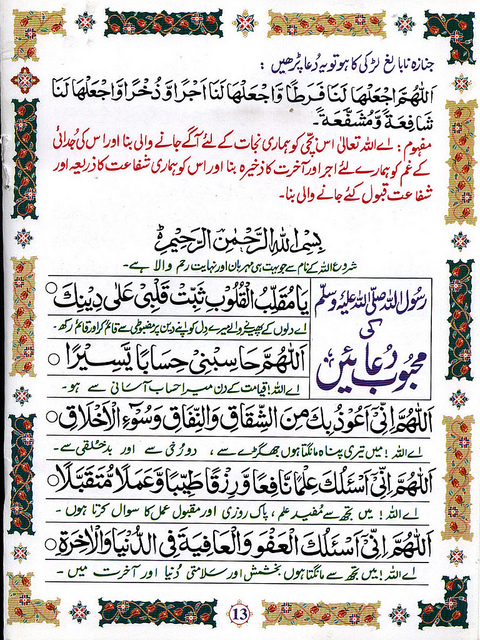 جنازہ نابالغ لڑکی کا ہو تو یہ دُعا پڑھیں :
اَللّٰهُمَّ اجْعَلْهَا لَنَا فَرَطًا وَّاجْعَلْهَا لَنَا اَجْرًا وَّذُخْرًا وَّاجْعَلْهَا لَنَا
شَافِعَةً وَّمُشَفَّعَةً۔
مفہوم : اے اللہ تعالیٰ اس بچّی کو ہماری نجات کے لئے آگے جانے والی بنا اور اس کی جُدائی
کے غم کو ہمارے لئے اجر اور آخرت کا ذخیرہ بنا اور اس کو ہماری شفاعت کا ذریعہ اور
شفاعت قبول کئے جانے والی بنا۔
بِسْمِ اللّٰهِ الرَّحْمٰنِ الرَّحِيْمِ
شروع اللہ کے نام سے جو بہت ہی مہربان اور نہایت رحم والا ہے۔
رسُول اللہ صلّی اللہ علیہ وسلم
کی
محبُوب دُعائیں
يَا مُقَلِّبَ الْقُلُوْبِ ثَبِّتْ قَلْبِيْ عَلٰى دِيْنِكَ ○
اے دلوں کے پھیرنے والے میرے دل کو اپنے دین پر مضبوطی سے قائم کر اور قائم رکھ۔
اَللّٰهُمَّ حَاسِبْنِيْ حِسَابًا يَّسِيْرًا ○
اے اللہ! قیامت کے دن میرا حساب آسانی سے ہو۔
اَللّٰهُمَّ اِنِّيْ اَعُوْذُ بِكَ مِنَ الشِّقَاقِ وَالنِّفَاقِ وَسُوْٓءِ الْاَخْلَاقِ ○
اے اللہ ! میں تیری پناہ مانگتا ہوں جھگڑے سے ، دو رُخی سے اور بدخلقی سے۔
اَللّٰهُمَّ اِنِّيْ اَسْئَلُكَ عِلْمًا نَّافِعًا وَّرِزْقًا طَيِّبًا وَّعَمَلًا مُّتَقَبَّلًا ○
اے اللہ ! میں تجھ سے مُفید علم ، پاک روزی اور مقبول عمل کا سوال کرتا ہوں۔
اَللّٰهُمَّ اِنِّيْ اَسْئَلُكَ الْعَفْوَ وَالْعَافِيَةَ فِي الدُّنْيَا وَالْاٰخِرَةِ ○
اے اللہ ! میں تجھ سے مانگتا ہوں بخشش اور سلامتی دُنیا اور آخرت میں۔
13